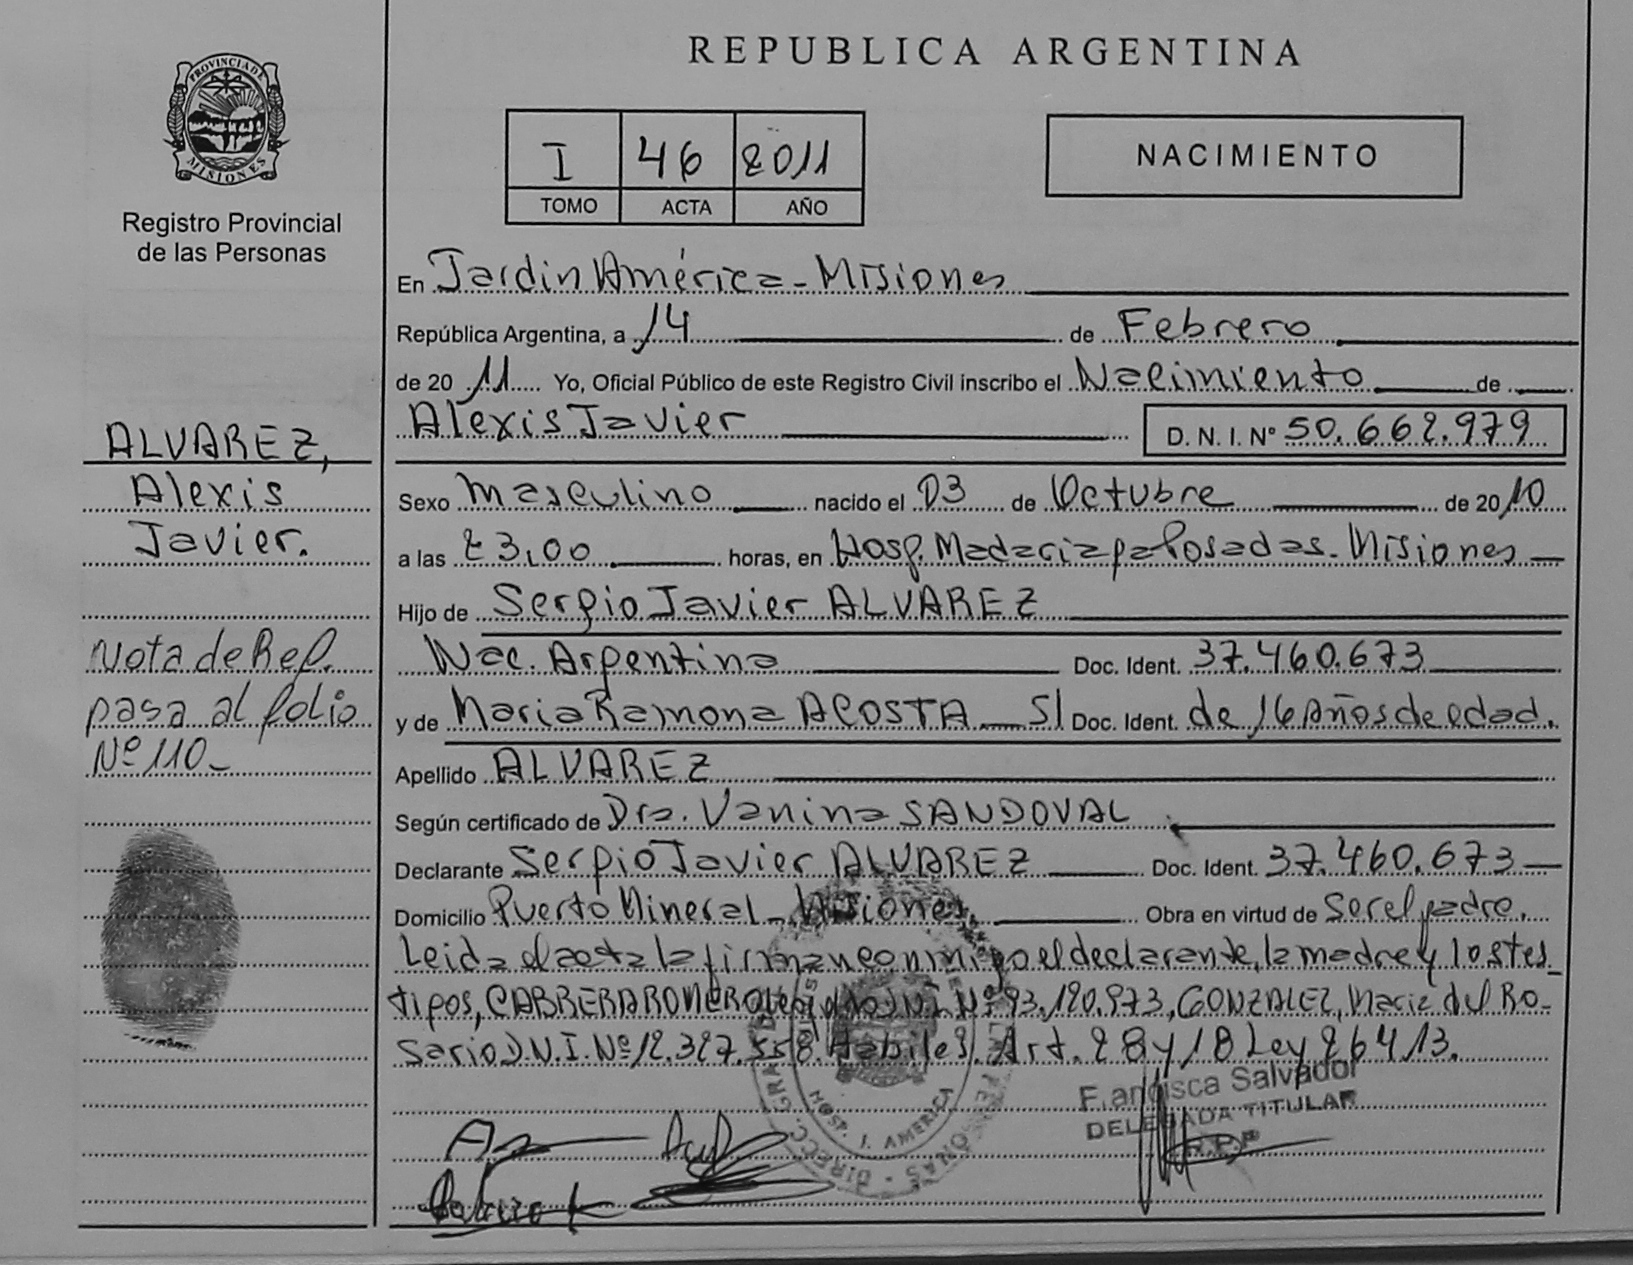 PROVINCIA DE
MISIONES
Registro Provincial
de las Personas
REPUBLICA ARGENTINA
I 46 2011
TOMO ACTA AÑO
NACIMIENTO
En Jardin América - Misiones
República Argentina, a 14 de Febrero
de 20 11 Yo, Oficial Público de este Registro Civil inscribo el Nacimiento de
Alexis Javier D. N. I. Nº 50.662.979
ALVAREZ,
Alexis
Javier.
Sexo Masculino nacido el 03 de Octubre de 2010
a las 23,00 horas, en Hosp. Madariaga Posadas. Misiones
Hijo de Sergio Javier ALVAREZ
Nac. Argentina Doc. Ident. 37.460.673
y de Maria Ramona ACOSTA S/ Doc. Ident. de 16 Años de edad.
Apellido ALVAREZ
Según certificado de Dra. Vanina SANDOVAL
Declarante Sergio Javier ALVAREZ Doc. Ident. 37.460.673
Domicilio Puerto Mineral - Misiones. Obra en virtud de Ser el padre.
Leida el acta la firman conmigo el declarante, la madre y los tes
tigos, CABRERA ROMERO D.N.I. Nº 93.190.973, GONZALEZ, Maria del Ro-
sario D.N.I. Nº 12.327.558. Habiles. Art. 28 y 18 Ley 26413.
Nota de Ref.
pasa al folio
Nº 110-
HOSP. J. AMERICA
Francisca Salvador
DELEGADA TITULAR
R.P.P